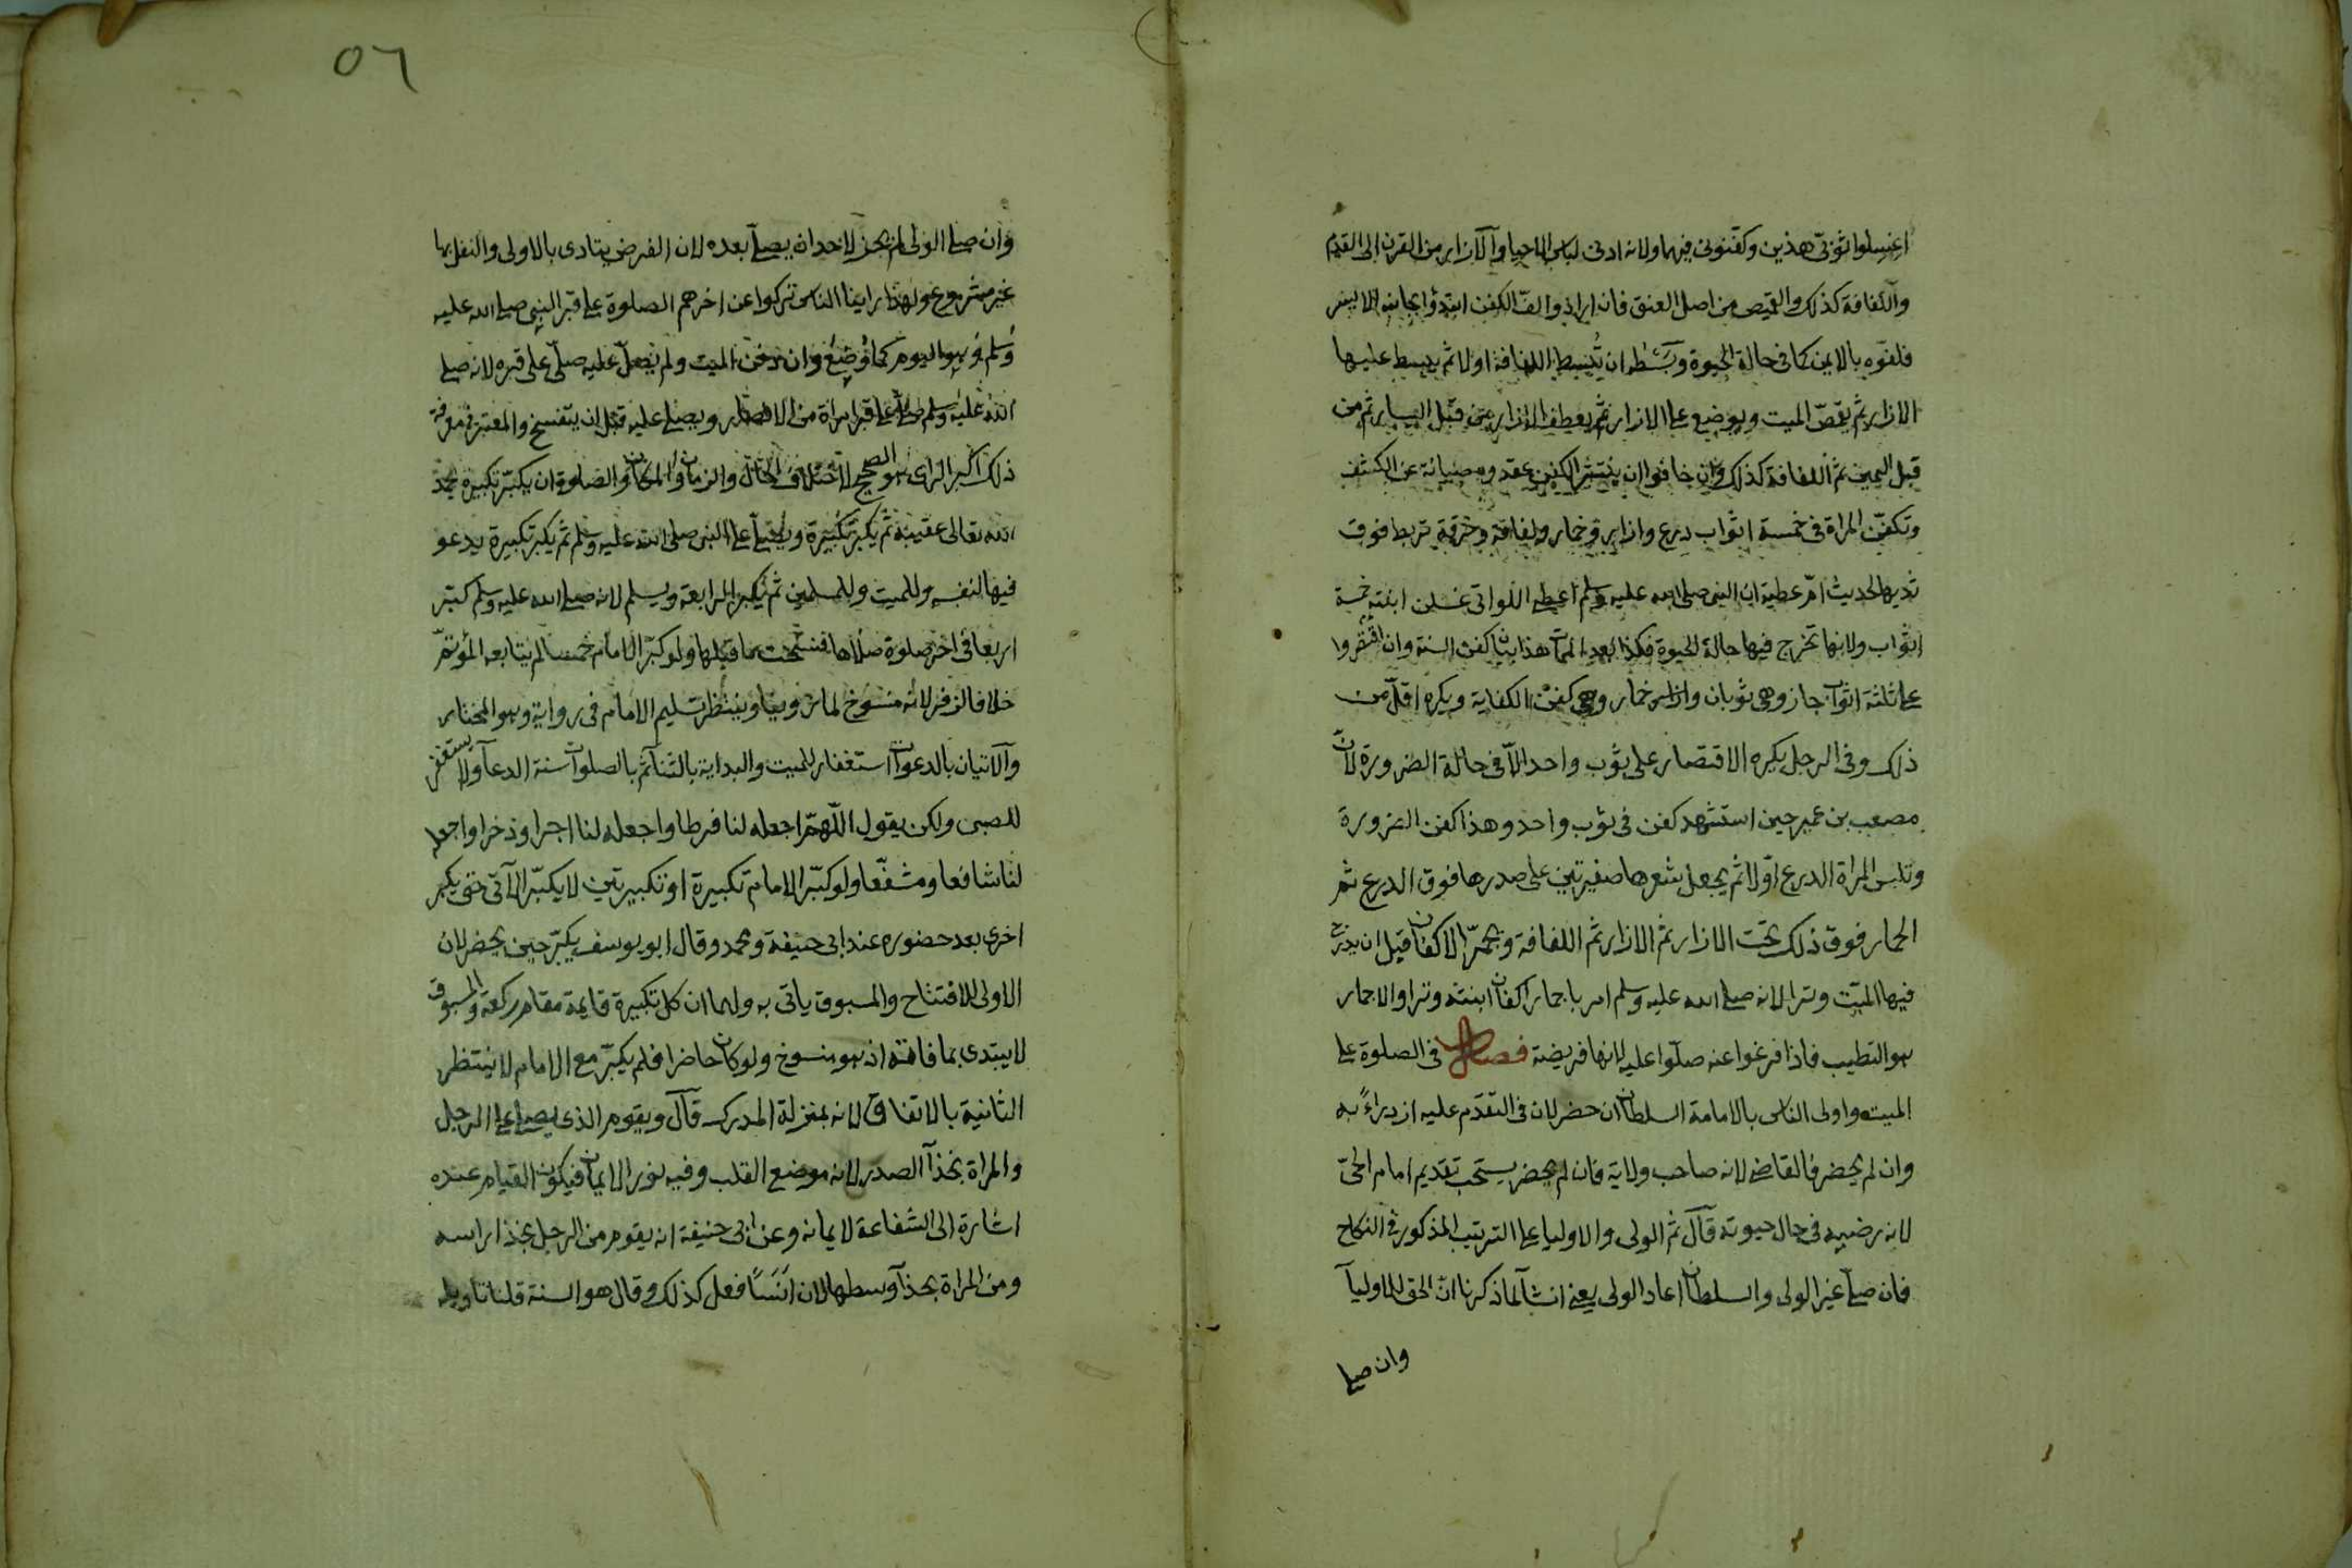 اغسلوا ثوبيّ هذين وكفّنوني فيهما ولانه ادنى لباس الاحيا والازار من القرن الى القدم
واللّفافة كذلك والقميص من اصل العنق فان ارادوا لفّ الكفن ابتدؤا بجانبه الايسر
فلفّوه بالايمن كما في حالة الحيوة وبَسْطه ان تُبسط اللفافة اولا ثم يبسط عليها
الازار ثم يقمّص الميت ويوضع على الازار ثم يعطف الازار من قبل اليسار ثم من
قبل اليمين ثم اللفافة كذلك وان خافوا ان ينتشر الكفن عقدوه صيانة عن الكشف
وتكفّن المراة في خمسة اثواب درع وازار وخمار ولفافة وخرقة تربط فوق
ثدييها لحديث امّ عطية ان النبي صلى الله عليه وسلم اعطى اللواتي غسلن ابنته خمسة
اثواب ولانها تخرج فيها حالة الحيوة فكذا بعد الممات هذا بيان كفن السنة وان اقتصروا
على ثلثة اثواب جاز وهي ثوبان وخمار وهي كفن الكفاية ويكره اقلّ من
ذلك وفي الرجل يكره الاقتصار على ثوب واحد الّا في حالة الضرورة لانّ
مصعب بن عمير حين استشهد كفن في ثوب واحد وهذا كفن الضرورة
وتلبس المراة الدرع اوّلا ثم يجعل شعرها ضفيرتين على صدرها فوق الدرع ثم
الخمار فوق ذلك تحت الازار ثم الازار ثم اللفافة وتجمّر الاكفان قبل ان يدرج
فيها الميّت وترا لانه صلى الله عليه وسلم امر باجمار اكفان ابنته وترا والاجمار
هو التطيب فاذا فرغوا عنه صلّوا عليه لانها فريضة فصل في الصلوة على
الميت واولى الناس بالامامة السلطان ان حضر لان في التقدّم عليه ازدراءً به
وان لم يحضر فالقاضي لانه صاحب ولاية فان لم يحضر يستحب تقديم امام الحيّ
لانه رضيه في حال حيوته قال ثم الولي والاوليا على الترتيب المذكور في النكاح
فان صلّى غير الولي والسلطان اعاد الولي يعني ان شآ لما ذكرنا انّ الحق للاوليآ
وان صلى
٥٦
وان صلى الولي لم يجز لاحد ان يصلّي بعده لان الفرض يتادى بالاولى والنفل بها
غير مشروع ولهذا راينا الناس تركوا عن اخرهم الصلوة على قبر النبي صلى الله عليه
وسلم وهو اليوم كما وُضع وان دفن الميت ولم يصلّ عليه صلّي على قبره لانه صلى
الله عليه وسلم صلّى على قبر امراة من الانصار ويصلى عليه قبل ان يتفسخ والمعتبر في معرفة
ذلك اكبر الراي هو الصحيح لاختلاف الحال والزمان والمكان والصلوة ان يكبّر تكبيرة يحمد
الله تعالى عقيبه ثم يكبّر تكبيرة ويصلّي على النبي صلى الله عليه وسلم ثم يكبر تكبيرة يدعو
فيها لنفسه وللميت وللمسلمين ثم يُكبر الرابعة ويسلم لانه صلى الله عليه وسلم كبّر
اربعا في اخر صلوة صلّاها فنسخت ما قبلها ولو كبّر الامام خمسا لم يتابعه المؤتمّ
خلافا لزفر لانه منسوخ لما روينا وينتظر تسليم الامام في رواية وهو المختار
والاتيان بالدعوات استغفار للميت والبداية بالثنآ ثم بالصلوات سنة الدعآ ولا يستغفر
للصبي ولكن يقول اللّهمّ اجعله لنا فرطا واجعله لنا اجرا وذخرا واجعله
لنا شافعا ومشفّعا ولو كبّر الامام تكبيرة او تكبيرتين لا يكبّر الآتي حتى يكبر
اخرى بعد حضوره عند ابي حنيفة ومحمد وقال ابو يوسف يكبّر حين يحضر لان
الاولى للافتتاح والمسبوق ياتي به ولهما ان كل تكبيرة قايمة مقام ركعة والمسبوق
لا يبتدي بما فاته اذ هو منسوخ ولو كان حاضرا فلم يكبّر مع الامام لا ينتظر
الثانية بالاتفاق لانه بمنزلة المدرك قال ويقوم الذي يصلي على الرجل
والمراة بحذآ الصدر لانه موضع القلب وفيه نور الايمان فيكون القيام عنده
اشارة الى الشفاعة لايمانه وعن ابي حنيفة انه يقوم من الرجل بحذا راسه
ومن المراة بحذآ وسطها لان انَسًا فعل كذلك وقال هو السنة قلنا تاويله